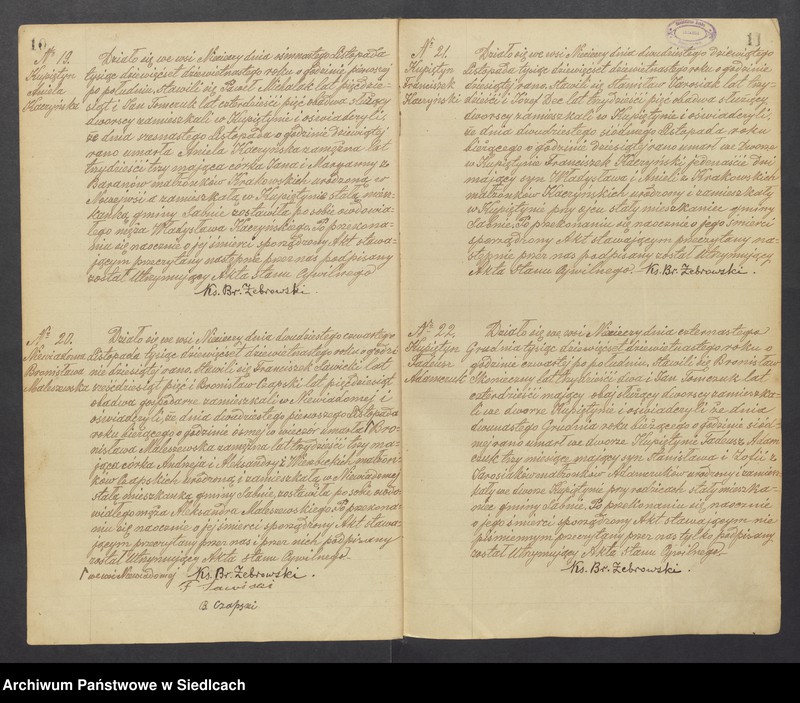 10
№ 19.
Kupiętyn
Aniela
Kaczyńska
Działo się we wsi Niecieczy dnia ósmnastego Listopada
tysiąc dziewięćset dziewiętnastego roku o godzinie pierwszej
po południu. Stawili się Paweł Michalak lat pięćdzie-
siąt i Jan Tomczuk lat czterdzieści pięć obadwa służący
dworscy zamieszkali w Kupiętynie i oświadczyli,
że dnia szesnastego Listopada o godzinie dziewiątej
rano umarła Aniela Kaczyńska zamężna lat
trzydzieści trzy mająca córka Jana i Marjanny z
Baranów małżonków Krakowskich urodzona w
a zamieszkała w Kupiętynie stała miesz-
kanka gminy Sabnie zostawiła po sobie owdowia-
łego męża Władysława Kaczyńskiego. Po przekona-
niu się naocznie o jej śmierci sporządzony Akt stawa-
jącym przeczytany następnie przez nas podpisany
został Utrzymujący Akta Stanu Cywilnego
Ks. Br. Żebrowski.
№ 20.
Niewiadoma
Bronisława
Maleszewska
Działo się we wsi Niecieczy dnia dwudziestego czwartego
Listopada tysiąc dziewięćset dziewiętnastego roku o godzi
nie dziesiątej rano. Stawili się Franciszek Sawicki lat
sześćdziesiąt pięć i Bronisław Czapski lat pięćdziesiąt
obadwa gospodarze zamieszkali w Niewiadomej i
oświadczyli, że dnia dwudziestego pierwszego Listopada
roku bieżącego o godzinie ósmej w wieczór umarła Bro-
nisława Maleszewska zamężna lat trzydzieści trzy ma-
jąca córka Andrzeja i Aleksandry z Wierzbickich małżon-
ków Czapskich urodzona i zamieszkała w Niewiadomej
stała mieszkanka gminy Sabnie, zostawiła po sobie owdo-
wiałego męża Aleksandra Maleszewskiego. Po przekona-
niu się naocznie o jej śmierci sporządzony Akt stawa-
jącym przeczytany przez nas i przez nich podpisany
został Utrzymujący Akta stanu Cywilnego.
we wsi Niewiadomej
Ks. Br. Żebrowski.
F Sawicki
B Czapski
11
№ 21.
Kupiętyn
Franciszek
Kaczyński
Działo się we wsi Niecieczy dnia dwudziestego dziewiątego
Listopada tysiąc dziewięćset dziewiętnastego roku o godzinie
dziesiątej rano. Stawili się Stanisław Sarosiak lat trzy-
dzieści i Józef lat trzydzieści pięć obadwa służący
dworscy zamieszkali w Kupiętynie i oświadczyli,
że dnia dwudziestego siódmego Listopada roku
bieżącego o godzinie dziesiątej rano umarł we dworze
w Kupiętynie Franciszek Kaczyński jedenaście dni
mający syn Władysława i Anieli z Krakowskich
małżonków Kaczyńskich urodzony i zamieszkały
w Kupiętynie przy ojcu stały mieszkaniec gminy
Sabnie. Po przekonaniu się naocznie o jego śmierci
sporządzony Akt stawającym przeczytany na-
stępnie przez nas podpisany został Utrzymujący
Akta Stanu Cywilnego. Ks. Br. Żebrowski.
№ 22.
Kupiętyn
Tadeusz
Adamczuk
Działo się we wsi Niecieczy dnia czternastego
Grudnia tysiąc dziewięćset dziewiętnastego roku o
godzinie czwartej po południu. Stawili się Bronisław
Skoneczny lat trzydzieści dwa i Jan Tomczuk lat
czterdzieści mający obaj służący dworscy zamieszka-
li we dworze Kupiętynie i oświadczyli że dnia
dwunastego Grudnia roku bieżącego o godzinie siód-
mej rano umarł we dworze Kupiętynie Tadeusz Adam
czuk trzy miesiące mający syn Stanisława i Zofii z
Sarosiaków małżonków Adamczuków urodzony i zamiesz-
kały we dworze Kupiętynie przy rodzicach stały mieszka-
niec gminy Sabnie. Po przekonaniu się naocznie
o jego śmierci sporządzony Akt stawającym nie
piśmiennym przeczytany przez nas tylko podpisany
został Utrzymujący Akta Stanu Cywilnego.
Ks. Br. Żebrowski.
Archiwum Państwowe w Siedlcach